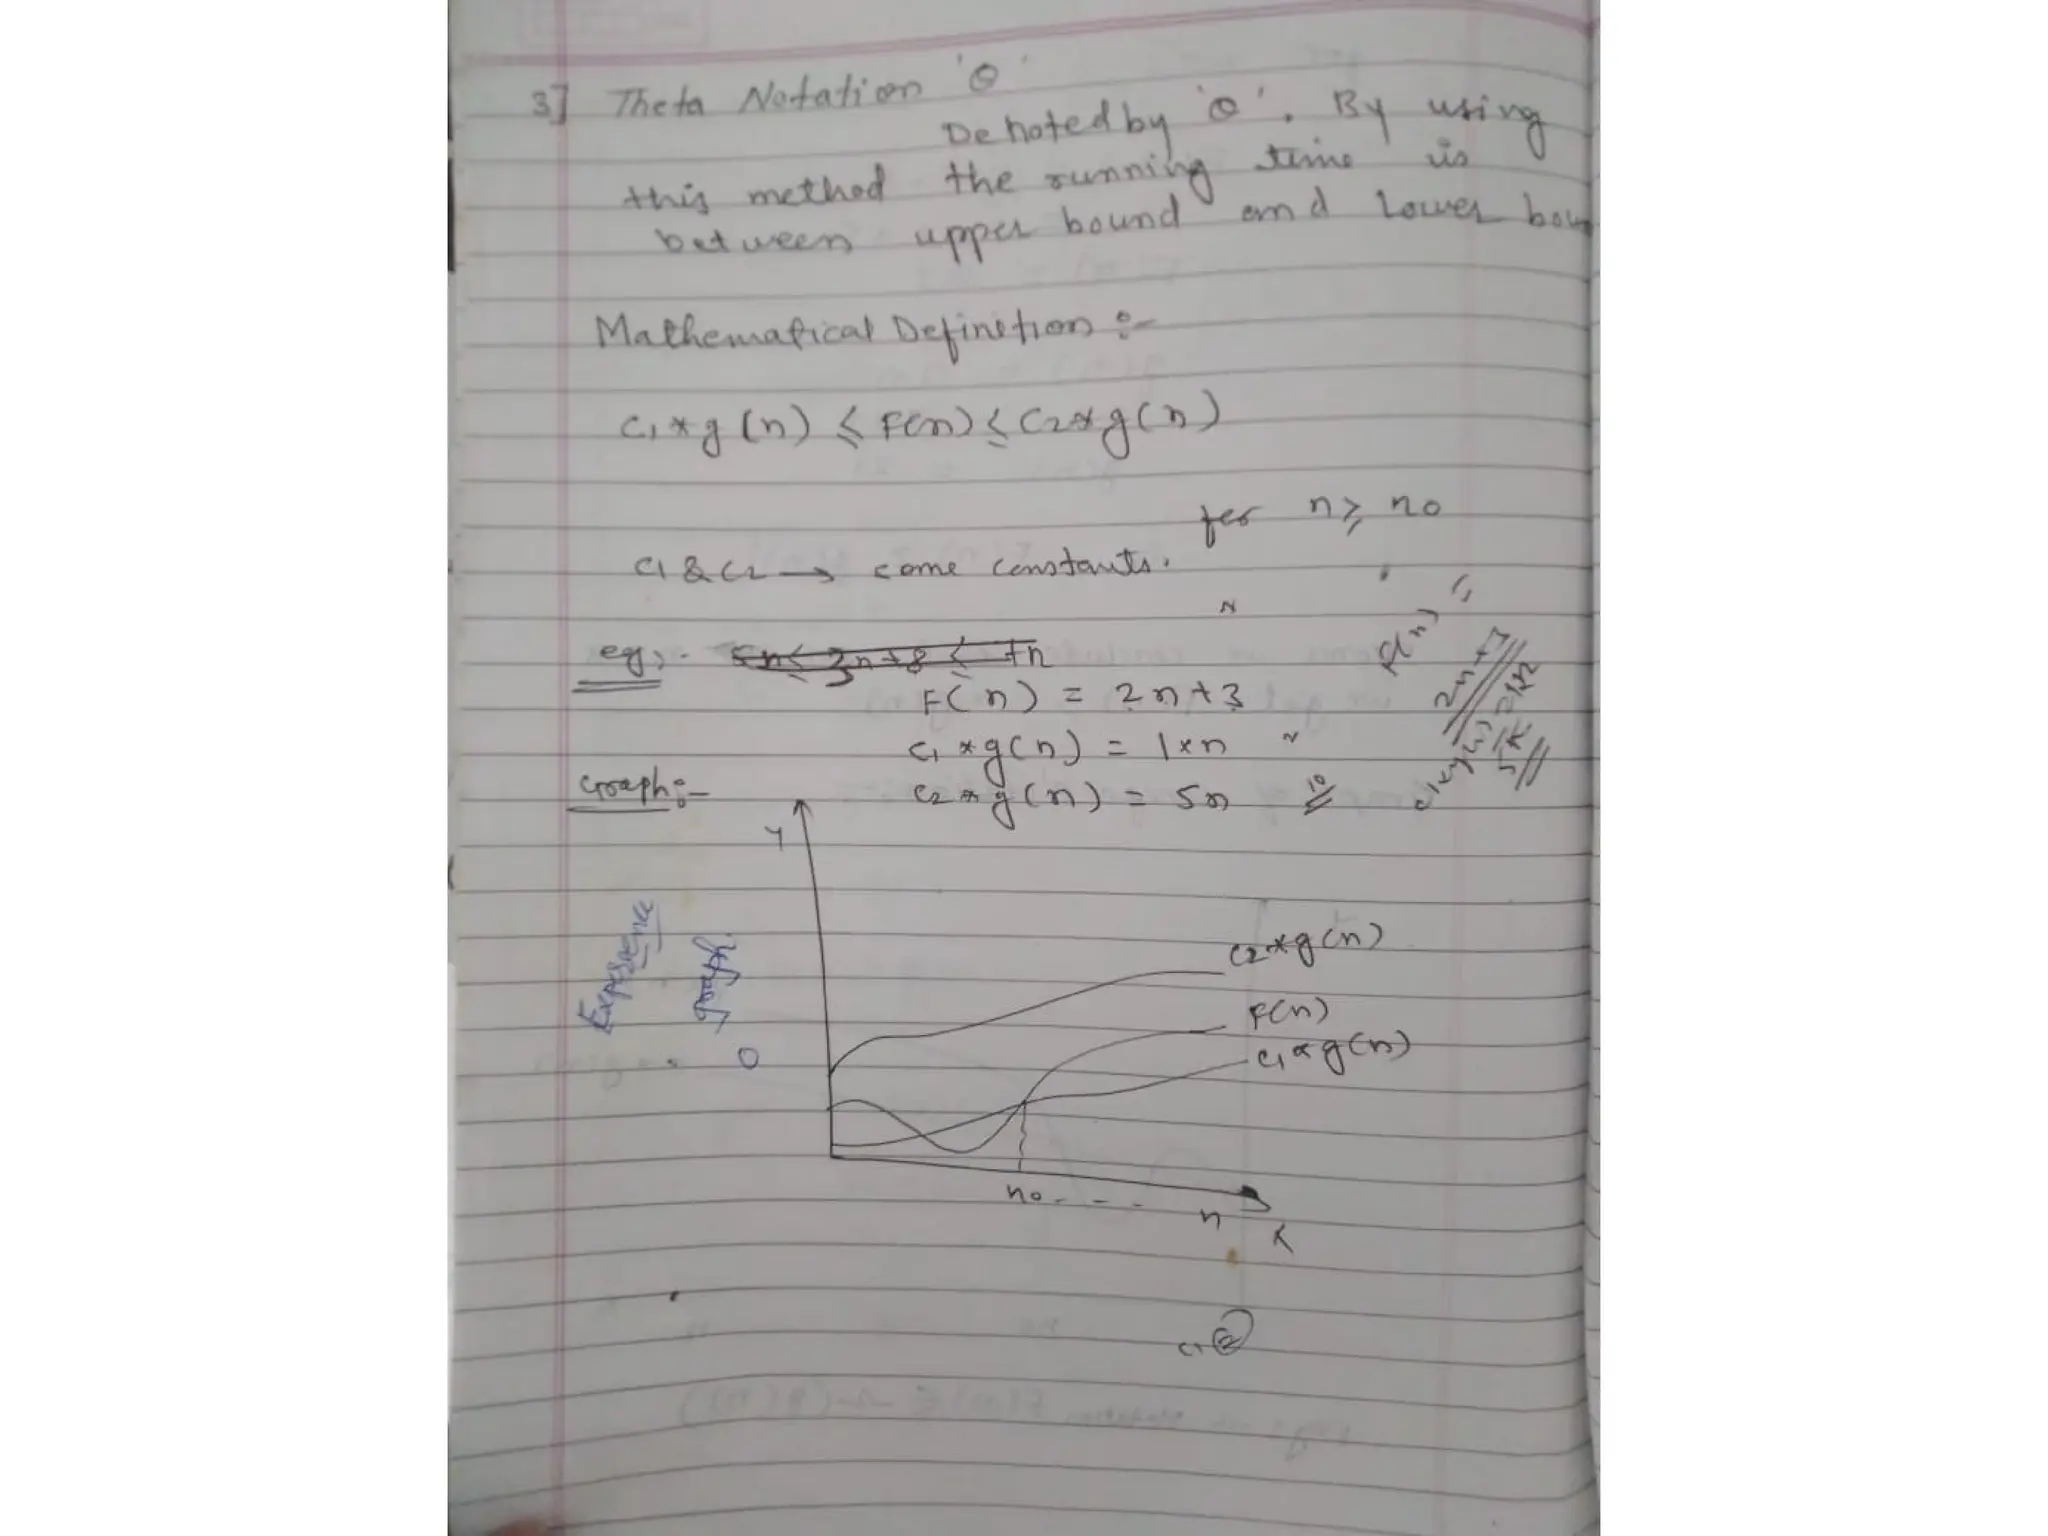 3] Theta Notation 'Θ'
Denoted by 'Θ'. By using
this method the running time is
between upper bound and Lower bou
Mathematical Definition :-
C1 * g(n) ≤ F(n) ≤ C2 * g(n)
for n ≥ no
C1 & C2 → some constants.
eg:- 5n ≤ 3n+8 ≤ 7n
F(n) = 2n+3
C1 * g(n) = 1×n
C2 * g(n) = 5n
10
2n+3
Graph:-
Y
graph
C2*g(n)
F(n)
C1*g(n)
0
no - - -
n
X
C1 2